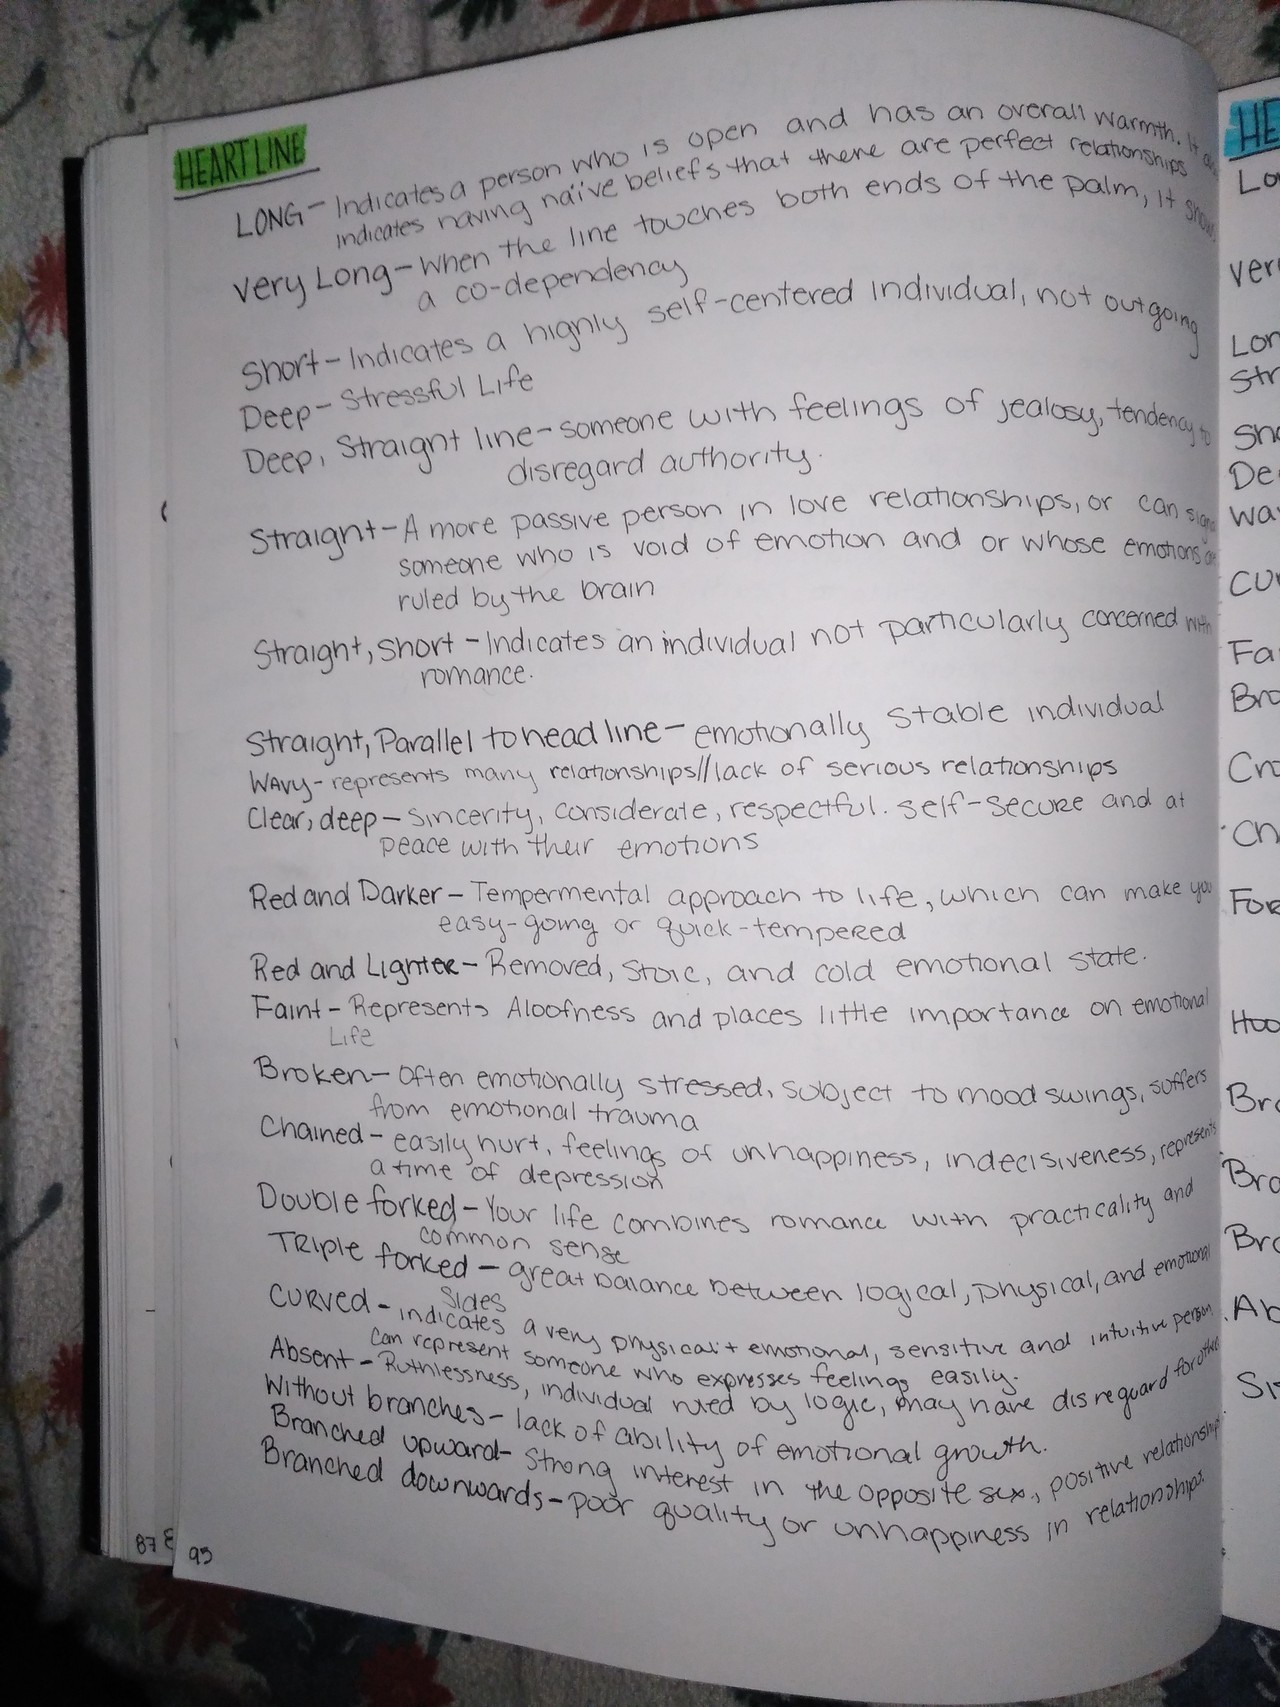 HEART LINE
LONG - Indicates a person who is open and has an overall warmth. It
indicates having naïve beliefs that there are perfect relationships
Very Long - When the line touches both ends of the palm, it shows
a co-dependency
Short - Indicates a highly self-centered individual, not outgoing
Deep - Stressful Life
Deep, Straight line - someone with feelings of jealosy, tendency to
disregard authority.
Straight - A more passive person in love relationships, or can
someone who is void of emotion and or whose emotions are
ruled by the brain
Straight, short - Indicates an individual not particularly concerned with
romance.
Straight, Parallel to head line - emotionally stable individual
WAVY - represents many relationships//lack of serious relationships
Clear, deep - sincerity, considerate, respectful. self-secure and at
peace with their emotions
Red and Darker - Tempermental approach to life, which can make you
easy-going or quick-tempered
Red and Lighter - Removed, Stoic, and cold emotional state.
Faint - Represents Aloofness and places little importance on emotional
Life
Broken - Often emotionally stressed, subject to mood swings, suffers
from emotional trauma
Chained - easily hurt, feelings of unhappiness, indecisiveness, represents
a time of depression
Double forked - Your life combines romance with practicality and
common sense
TRIPle forked - great balance between logical, physical, and emotional
sides
CURVED - indicates a very physical + emotional, sensitive and intuitive person
Can represent someone who expresses feelings easily.
Absent - Ruthlessness, individual ruled by logic, may have disreguard for
Without branches - lack of ability of emotional growth.
Branched upward - Strong interest in the opposite sex, positive relationships
Branched downwards - poor quality or unhappiness in relationships.
87
95
HE